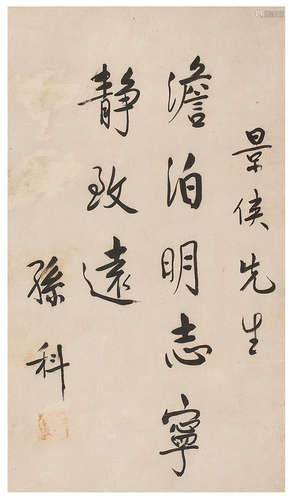 景侯先生
澹泊明志寧
靜致遠
孫科